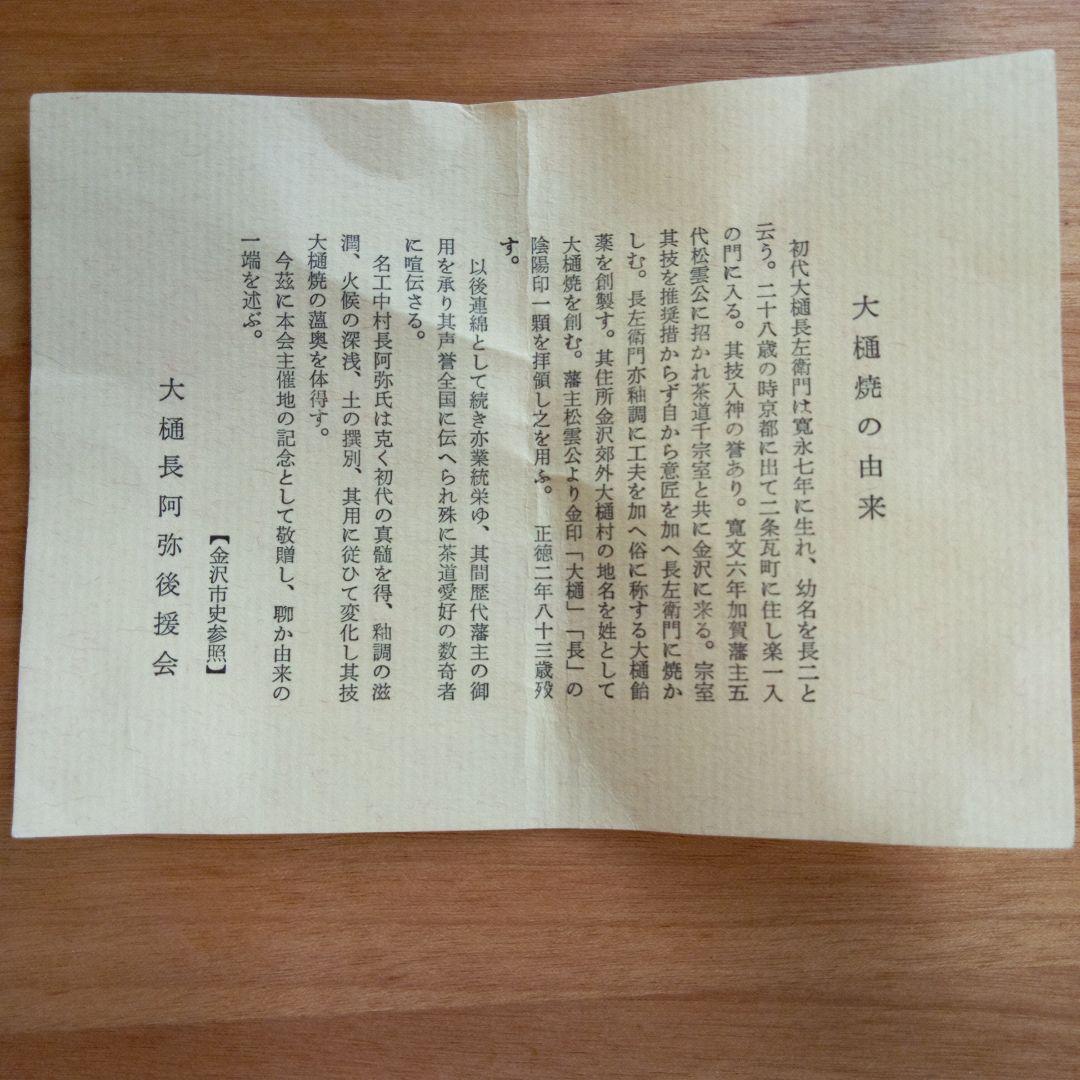 大樋焼の由来
初代大樋長左衛門は寛永七年に生れ、幼名を長二と
云う。二十八歳の時京都に出て二条瓦町に住し楽一入
の門に入る。其技入神の誉あり。寛文六年加賀藩主五
代松雲公に招かれ茶道千宗室と共に金沢に来る。宗室
其技を推奨措からず自から意匠を加へ長左衛門に焼か
しむ。長左衛門亦釉調に工夫を加へ俗に称する大樋飴
薬を創製す。其住所金沢郊外大樋村の地名を姓として
大樋焼を創む。藩主松雲公より金印「大樋」「長」の
陰陽印一顆を拝領し之を用ふ。 正徳二年八十三歳歿
す。
以後連綿として続き亦業統栄ゆ、其間歴代藩主の御
用を承り其声誉全国に伝へられ殊に茶道愛好の数奇者
に喧伝さる。
名工中村長阿弥氏は克く初代の真髄を得、釉調の滋
潤、火候の深浅、土の撰別、其用に従ひて変化し其技
大樋焼の薀奥を体得す。
今茲に本会主催地の記念として敬贈し、聊か由来の
一端を述ぶ。
【金沢市史参照】
大樋長阿弥後援会